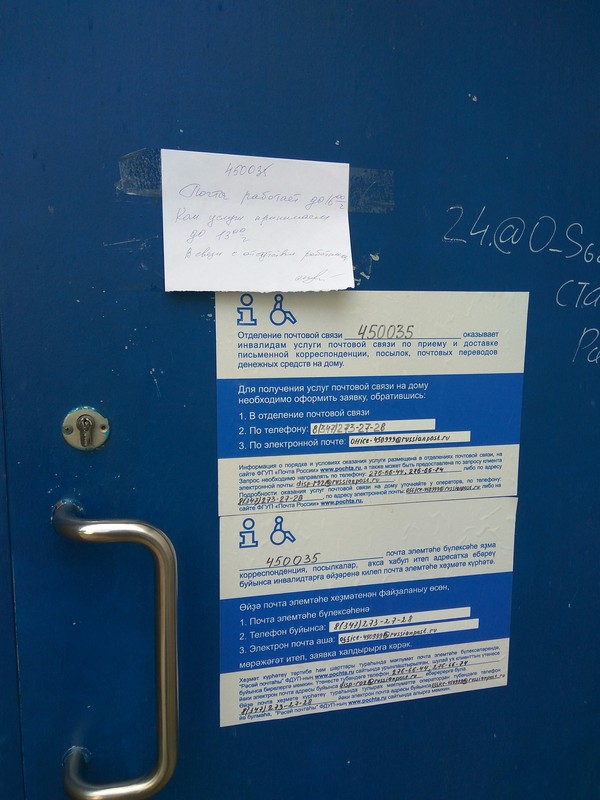 450035
Почта работает до 16 00
Ком услуги принимаем
до 13 00
В связи с отсутствием
24.@O_S
Ста
Ра
Отделение почтовой связи 450035 оказывает
инвалидам услуги почтовой связи по приему и доставке
письменной корреспонденции, посылок, почтовых переводов
денежных средств на дому.
Для получения услуг почтовой связи на дому
необходимо оформить заявку, обратившись:
1. В отделение почтовой связи
2. По телефону: 8(347)273-27-28
3. По электронной почте: office-450999@russianpost.ru
Информация о порядке и условиях оказания услуги размещена в отделениях почтовой связи, на
сайте ФГУП «Почта России» www.pochta.ru, а также может быть предоставлена по запросу клиента
Запрос необходимо направлять по телефону: 276-66-44, 276-66-74 либо по адресу
электронной почты:
Подробности оказания услуг почтовой связи на дому уточняйте у оператора, по телефону:
8(347)273-27-28, по адресу электронной почты: либо на
сайте ФГУП «Почта России» www.pochta.ru.
450035 почта элемтәһе бүлексәһе яҙма
корреспонденция, посылкалар, аҡса ҡабул итеп адресатҡа ебәреү
буйынса инвалидтарға өйҙәренә килеп почта элемтәһе хеҙмәте күрһәтә.
Өйҙә почта элемтәһе хеҙмәтенән файҙаланыу өсөн,
1. Почта элемтәһе бүлексәһенә
2. Телефон буйынса: 8(347)273-27-28
3. Электрон почта аша: office-450999@russianpost.ru
мөрәжәғәт итеп, заявка ҡалдырырға кәрәк.
Хеҙмәт күрһәтеү тәртибе һәм шарттары тураһында мәғлүмәт почта элемтәһе бүлексәләрендә,
"Рәсәй почтаһы" ФДУП-ның www.pochta.ru сайтында урынлаштырылған, шулай уҡ клиенттың үтенесе
буйынса бирелергә мөмкин. Үтенесте түбәндәге телефон 276-66-44, 276-66-74
йәки электрон почта адресы буйынса ебәрергә була.
Өйҙә почта хеҙмәте күрһәтеү тураһында тулыраҡ мәғлүмәтте оператордан түбәндәге телефон
8(347)273-27-28 йәки электрон почта адресы буйынса
йә булмаһа, "Рәсәй почтаһы" ФДУП-ның www.pochta.ru сайтында алырға мөмкин.